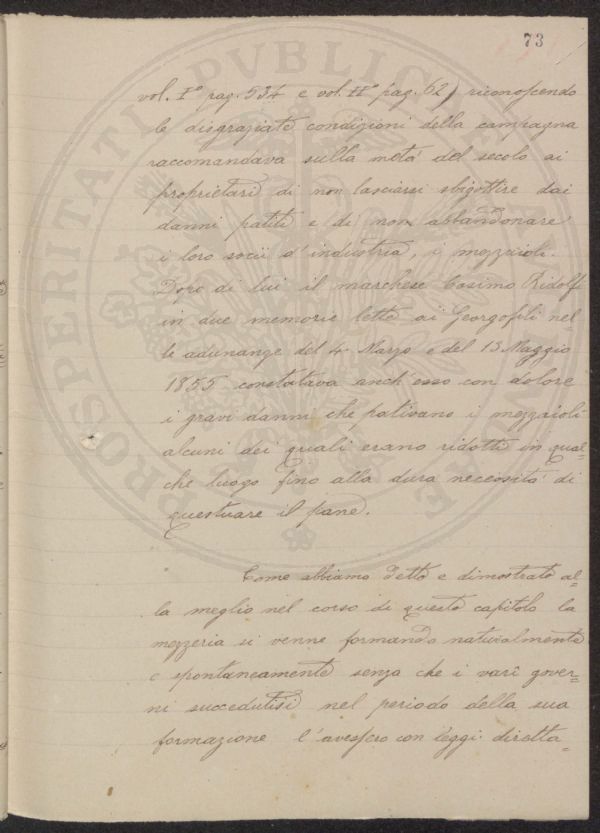 73
vol. I° pag. 534 e vol. II° pag. 62) riconoscendo
le disgraziate condizioni della campagna
raccomandava sulla metà del secolo ai
proprietari di non lasciarsi sbigottire dai
danni patiti e di non abbandonare
i loro socii d'industria, i mezzaioli.
Dopo di lui il marchese Cosimo Ridolfi
in due memorie lette ai Georgofili nel
le adunanze del 4 Marzo e del 13 Maggio
1855 constatava anch'esso con dolore
i gravi danni che pativano i mezzaioli
alcuni dei quali erano ridotti in qual=
che luogo fino alla dura necessità di
questuare il pane.
Come abbiamo detto e dimostrato al=
la meglio nel corso di questo capitolo la
mezzeria si venne formando naturalmente
e spontaneamente senza che i varî gover=
ni succedutisi nel periodo della sua
formazione l'avessero con leggi diretta=
PROSPERITATI PVBLICAE